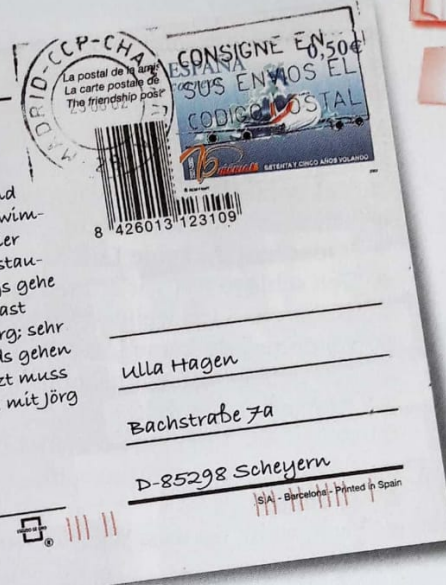 MADRID-CCP-CHA
La postal de
La carte postale de
The friendship post
ESPAÑA
0,50€
CONSIGNE EN
SUS ENVIOS EL
CODIGO POSTAL
75
SETENTA Y CINCO AÑOS VOLANDO
8 426013 123109
nd
wim-
er
stau-
gs gehe
ast
rg; sehr
ds gehen
zt muss
mit Jörg
Ulla Hagen
Bachstraße 7a
D-85298 Scheyern
S.A. - Barcelona - Printed in Spain